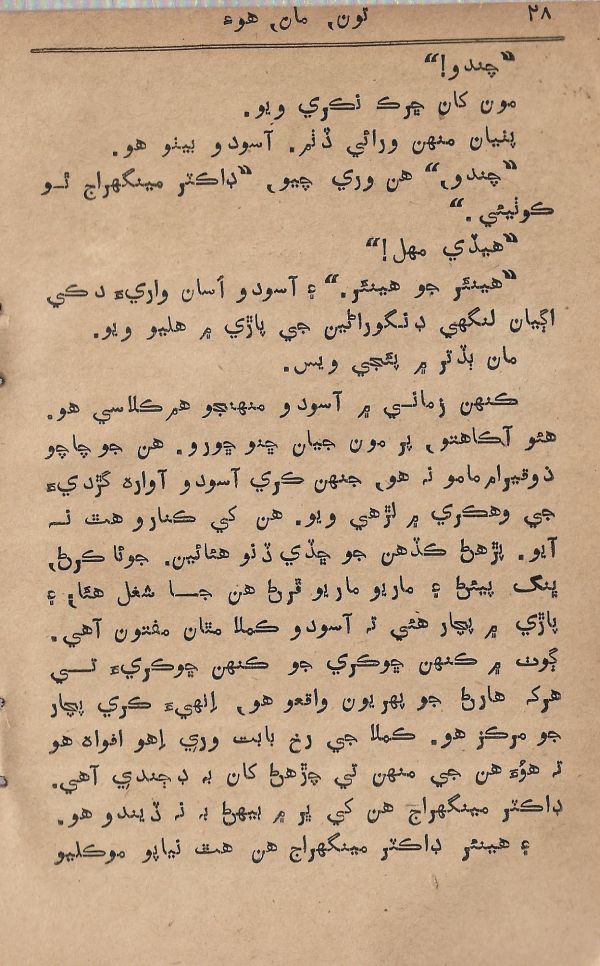 ۲۸ تون, مان, هوءَ
“چندو!“
مون کان ڇرڪ نڪري ويو.
پٺيان منهن ورائي ڏٺم. آسودو بيٺو هو.
“چندو,“ هن وري چيو, “ڊاڪٽر مينگهراج ٿو
ڪوٺيئي.“
“هيڏي مهل!“
“هينئر جو هينئر.“ ۽ آسودو اُسان واريءَ دڪي
اڳيان لنگهي ڊنگوراڻين جي پاڙي ۾ هليو ويو.
مان ٻڏتر ۾ پئجي ويس.
ڪنهن زماني ۾ آسودو منهنجو هم ڪلاسي هو.
هئو آڪاهتو, پر مون جيان ڇنو ڇورو. هن جو چاچو
ذوقيرام مامو نہ هو, جنهن ڪري آسودو آواره گردديءَ
جي وهڪري ۾ لڙهي ويو. هن کي ڪنارو هٿ نہ
آيو. پڙهڻ ڪڏهن جو ڇڏي ڏنو هئائين. جوئا ڪرڻ,
ڀنگ پيئڻ ۽ ماريو ماريو ڦرڻ هن جا شغل هئا; ۽
پاڙي ۾ پچار هئي تہ آسودو ڪملا مٿان مفتون آهي.
ڳوٺ ۾ ڪنهن ڇوڪري جو ڪنهن ڇوڪريءَ تي
هرکہ هارڻ جو پهريون واقعو هو, اِنهيءَ ڪري پچار
جو مرڪز هو. ڪملا جي رخ بابت وري اِهو افواه هو
تہ هوُءَ هن جي منهن تي چڙهڻ کان بہ ڊڄندي آهي.
ڊاڪٽر مينگهراج هن کي ڀر ۾ بيهڻ بہ نہ ڏيندو هو.
۽ هينئر ڊاڪٽر مينگهراج هن هٿ نياپو موڪليو